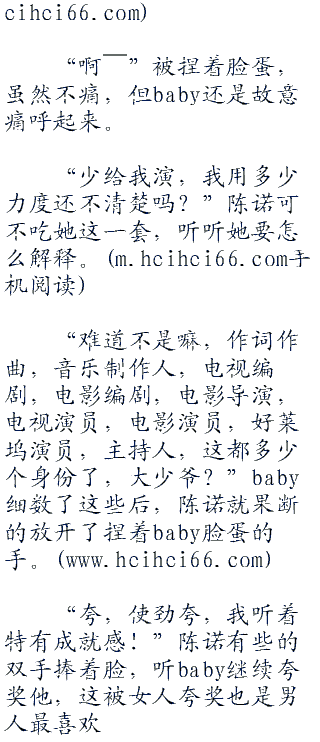 cihci66.com)
“啊——”被捏着脸蛋，
虽然不痛，但baby还是故意
痛呼起来。
“少给我演，我用多少
力度还不清楚吗？”陈诺可
不吃她这一套，听听她要怎
么解释。(m.hcihci66.com手
机阅读)
“难道不是嘛，作词作
曲，音乐制作人，电视编
剧，电影编剧，电影导演，
电视演员，电影演员，好莱
坞演员，主持人，这都多少
个身份了，大少爷？”baby
细数了这些后，陈诺就果断
的放开了捏着baby脸蛋的
手。(www.hcihci66.com)
“夸，使劲夸，我听着
特有成就感！”陈诺有些的
双手捧着脸，听baby继续夸
奖他，这被女人夸奖也是男
人最喜欢